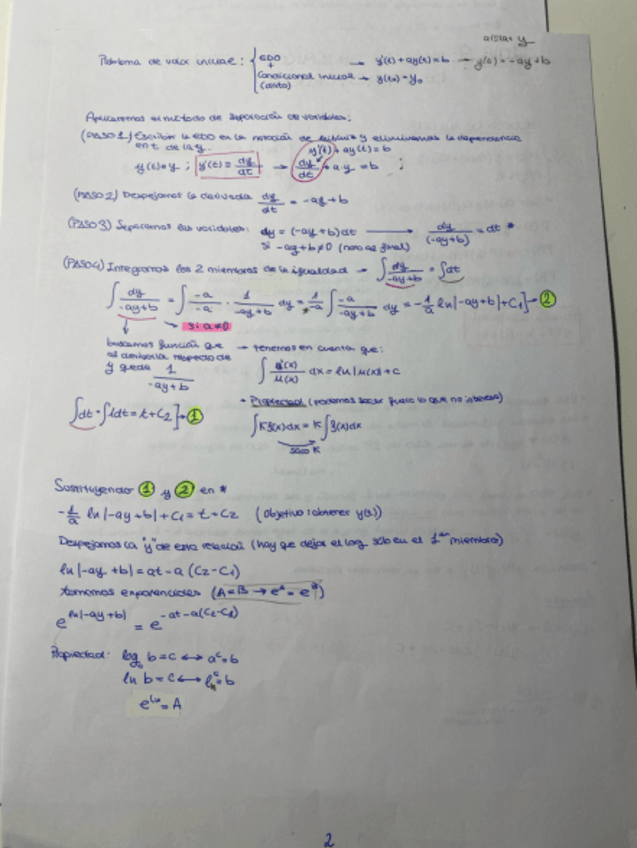 aislar y
Problema de valor inicial: EDO → y'(t) + ay(t) = b → y'(t) = -ay + b
+
Condicional inicial → y(t₀) = y₀
(dato)
Aplicaremos el método de separación de variables:
(PASO 1) Escribir la EDO en la notación de Leibniz y eliminamos la dependencia
en t de la y.
y'(t) + ay(t) = b
y(t) = y ; y'(t) = dy/dt → dy/dt + a·y = b ;
(PASO 2) Despejamos la derivada dy/dt = -ay + b
(PASO 3) Separamos las variables: dy = (-ay + b)dt → dy/(-ay+b) = dt *
si -ay + b ≠ 0 (nota al final)
(PASO 4) Integramos los 2 miembros de la igualdad → ∫ dy/-ay+b = ∫dt
∫ dy/-ay+b = ∫ -a/-a · 1/-ay+b dy = 1/-a ∫ -a/-ay+b dy = -1/a ln|-ay+b| + C₁] → 2
si a ≠ 0
buscamos función que
al derivarla respecto de
y quede 1/-ay+b
→ tenemos en cuenta que:
∫ u'(x)/u(x) dx = ln|u(x)| + c
• Propiedad (podemos sacar fuera lo que no interesa)
∫K f(x)dx = K ∫f(x)dx
saco K
∫dt = ∫1dt = t + C₂] → 1
Sustituyendo 1 y 2 en *
-1/a ln|-ay+b| + C₁ = t + C₂ (Objetivo: obtener y(t))
Despejamos la "y" de esta relación (hay que dejar el log solo en el 1er miembro)
ln|-ay+b| = at - a(C₂-C₁)
tomamos exponenciales (A=B → eᴬ = eᴮ)
e^ln|-ay+b| = e^-at-a(C₂-C₁)
Propiedad: logₐ b = c ↔ aᶜ = b
ln b = c ↔
= b
2